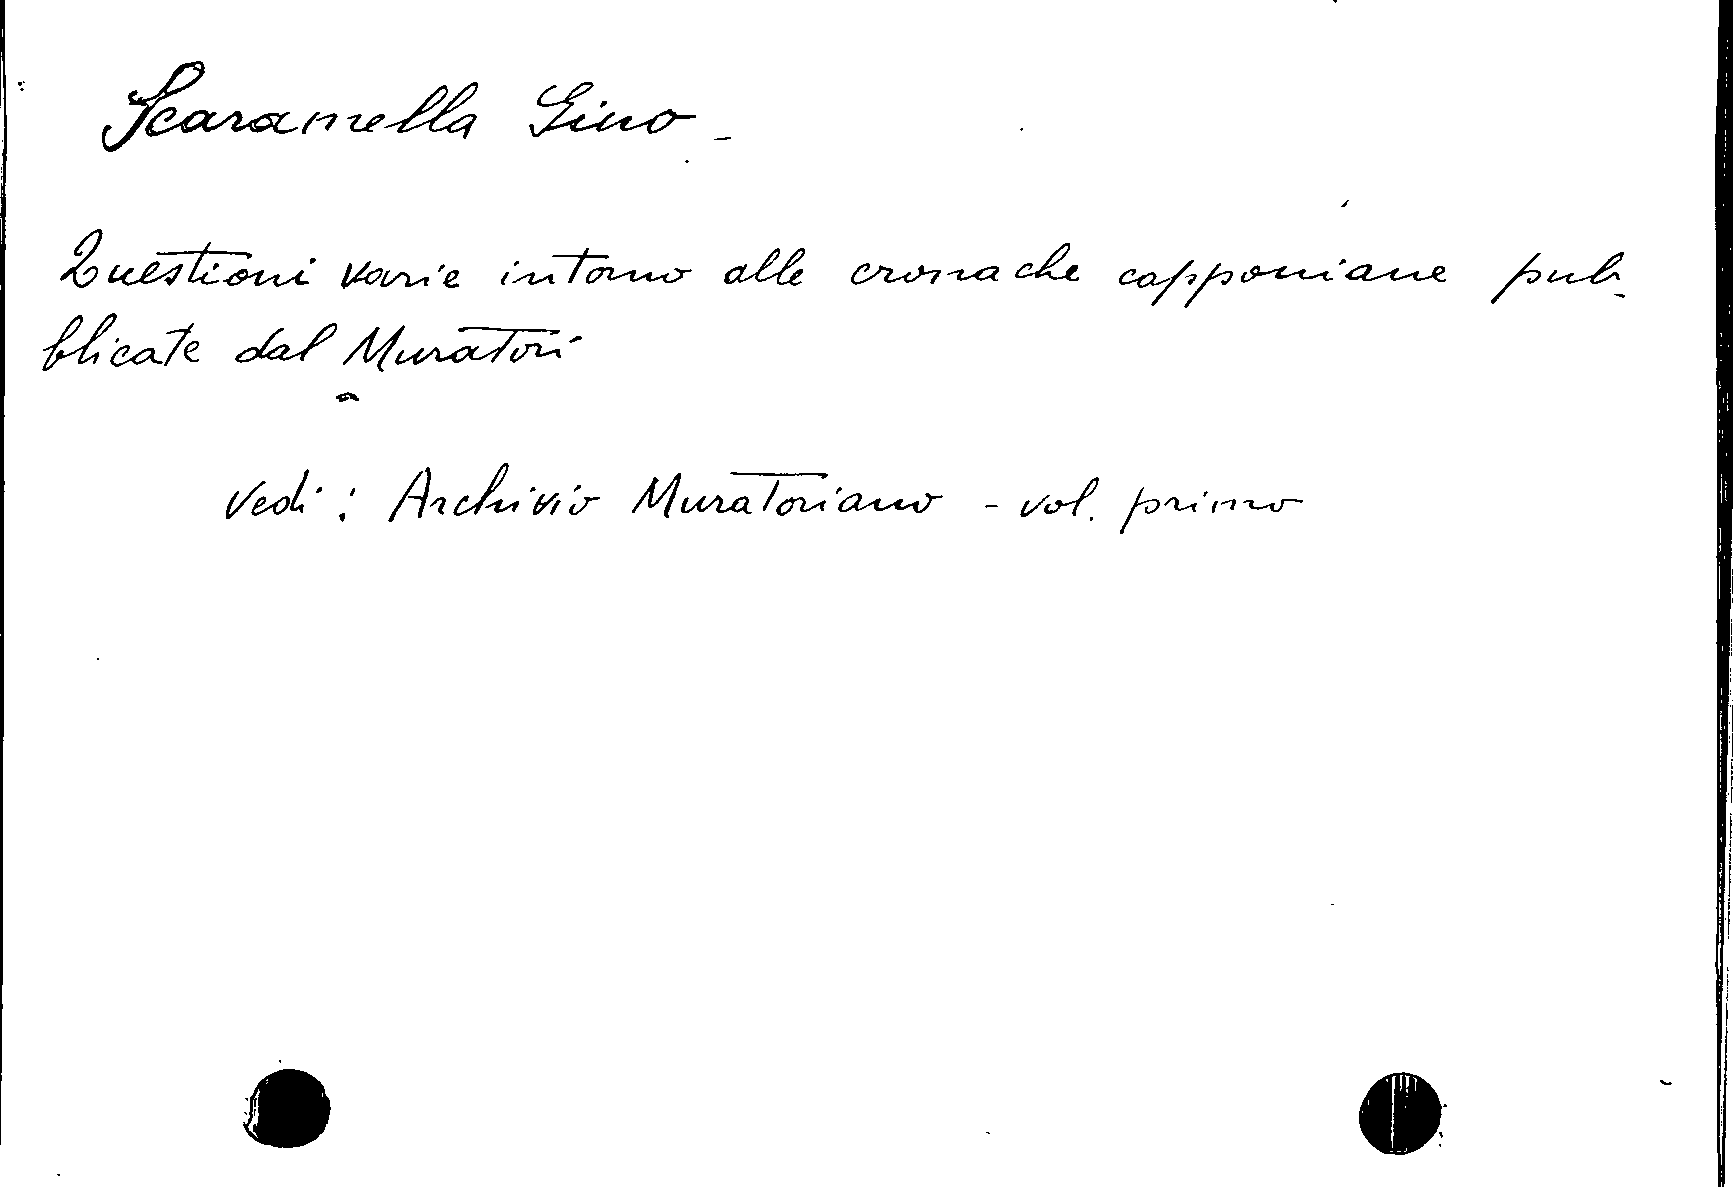 Scaramella Gino -
Questioni varie intorno alle cronache capponiane pub-
blicate dal Muratori
vedi : Archivio Muratoriano - vol. primo